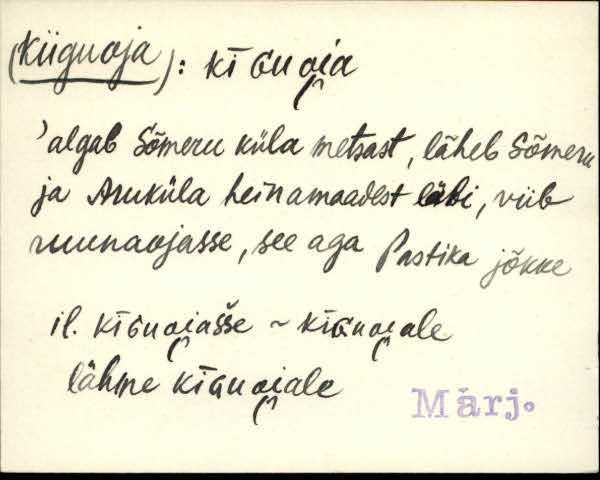 (Kiiguoja): kīGuoi̯a
’algab Sõmeru küla metsast, läheb Sõmeru
ja Aruküla heinamaadest läbi, viib
ruunaojasse, see aga Pastika jõkke
il. kīGuoi̯ašše ~ kīGuoi̯ale
lähme kīGuoi̯ale
Märj.